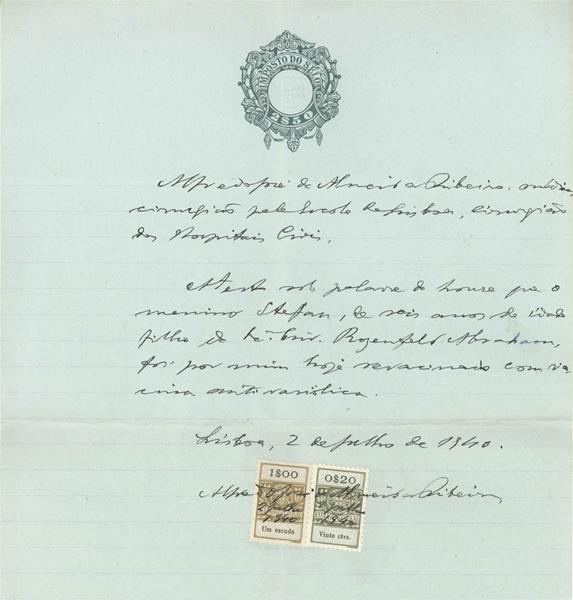 IMPOSTO DO SELO
2$50
Alfredo José de Almeida Ribeiro, médico
cirurgião pela Escola de Lisboa, cirurgião
dos Hospitais Civis,
Atesto sob palavra de honra que o
menino Stefan, de seis anos de idade
filho de Rozenfeld Abraham,
foi por mim hoje revacinado com va
cina antivariólica.
Lisboa, 2 de Julho de 1940.
1$00 0$20
Alfredo José de Almeida Ribeiro
2 Julho
1940 1940
Um escudo Vinte ctvs.